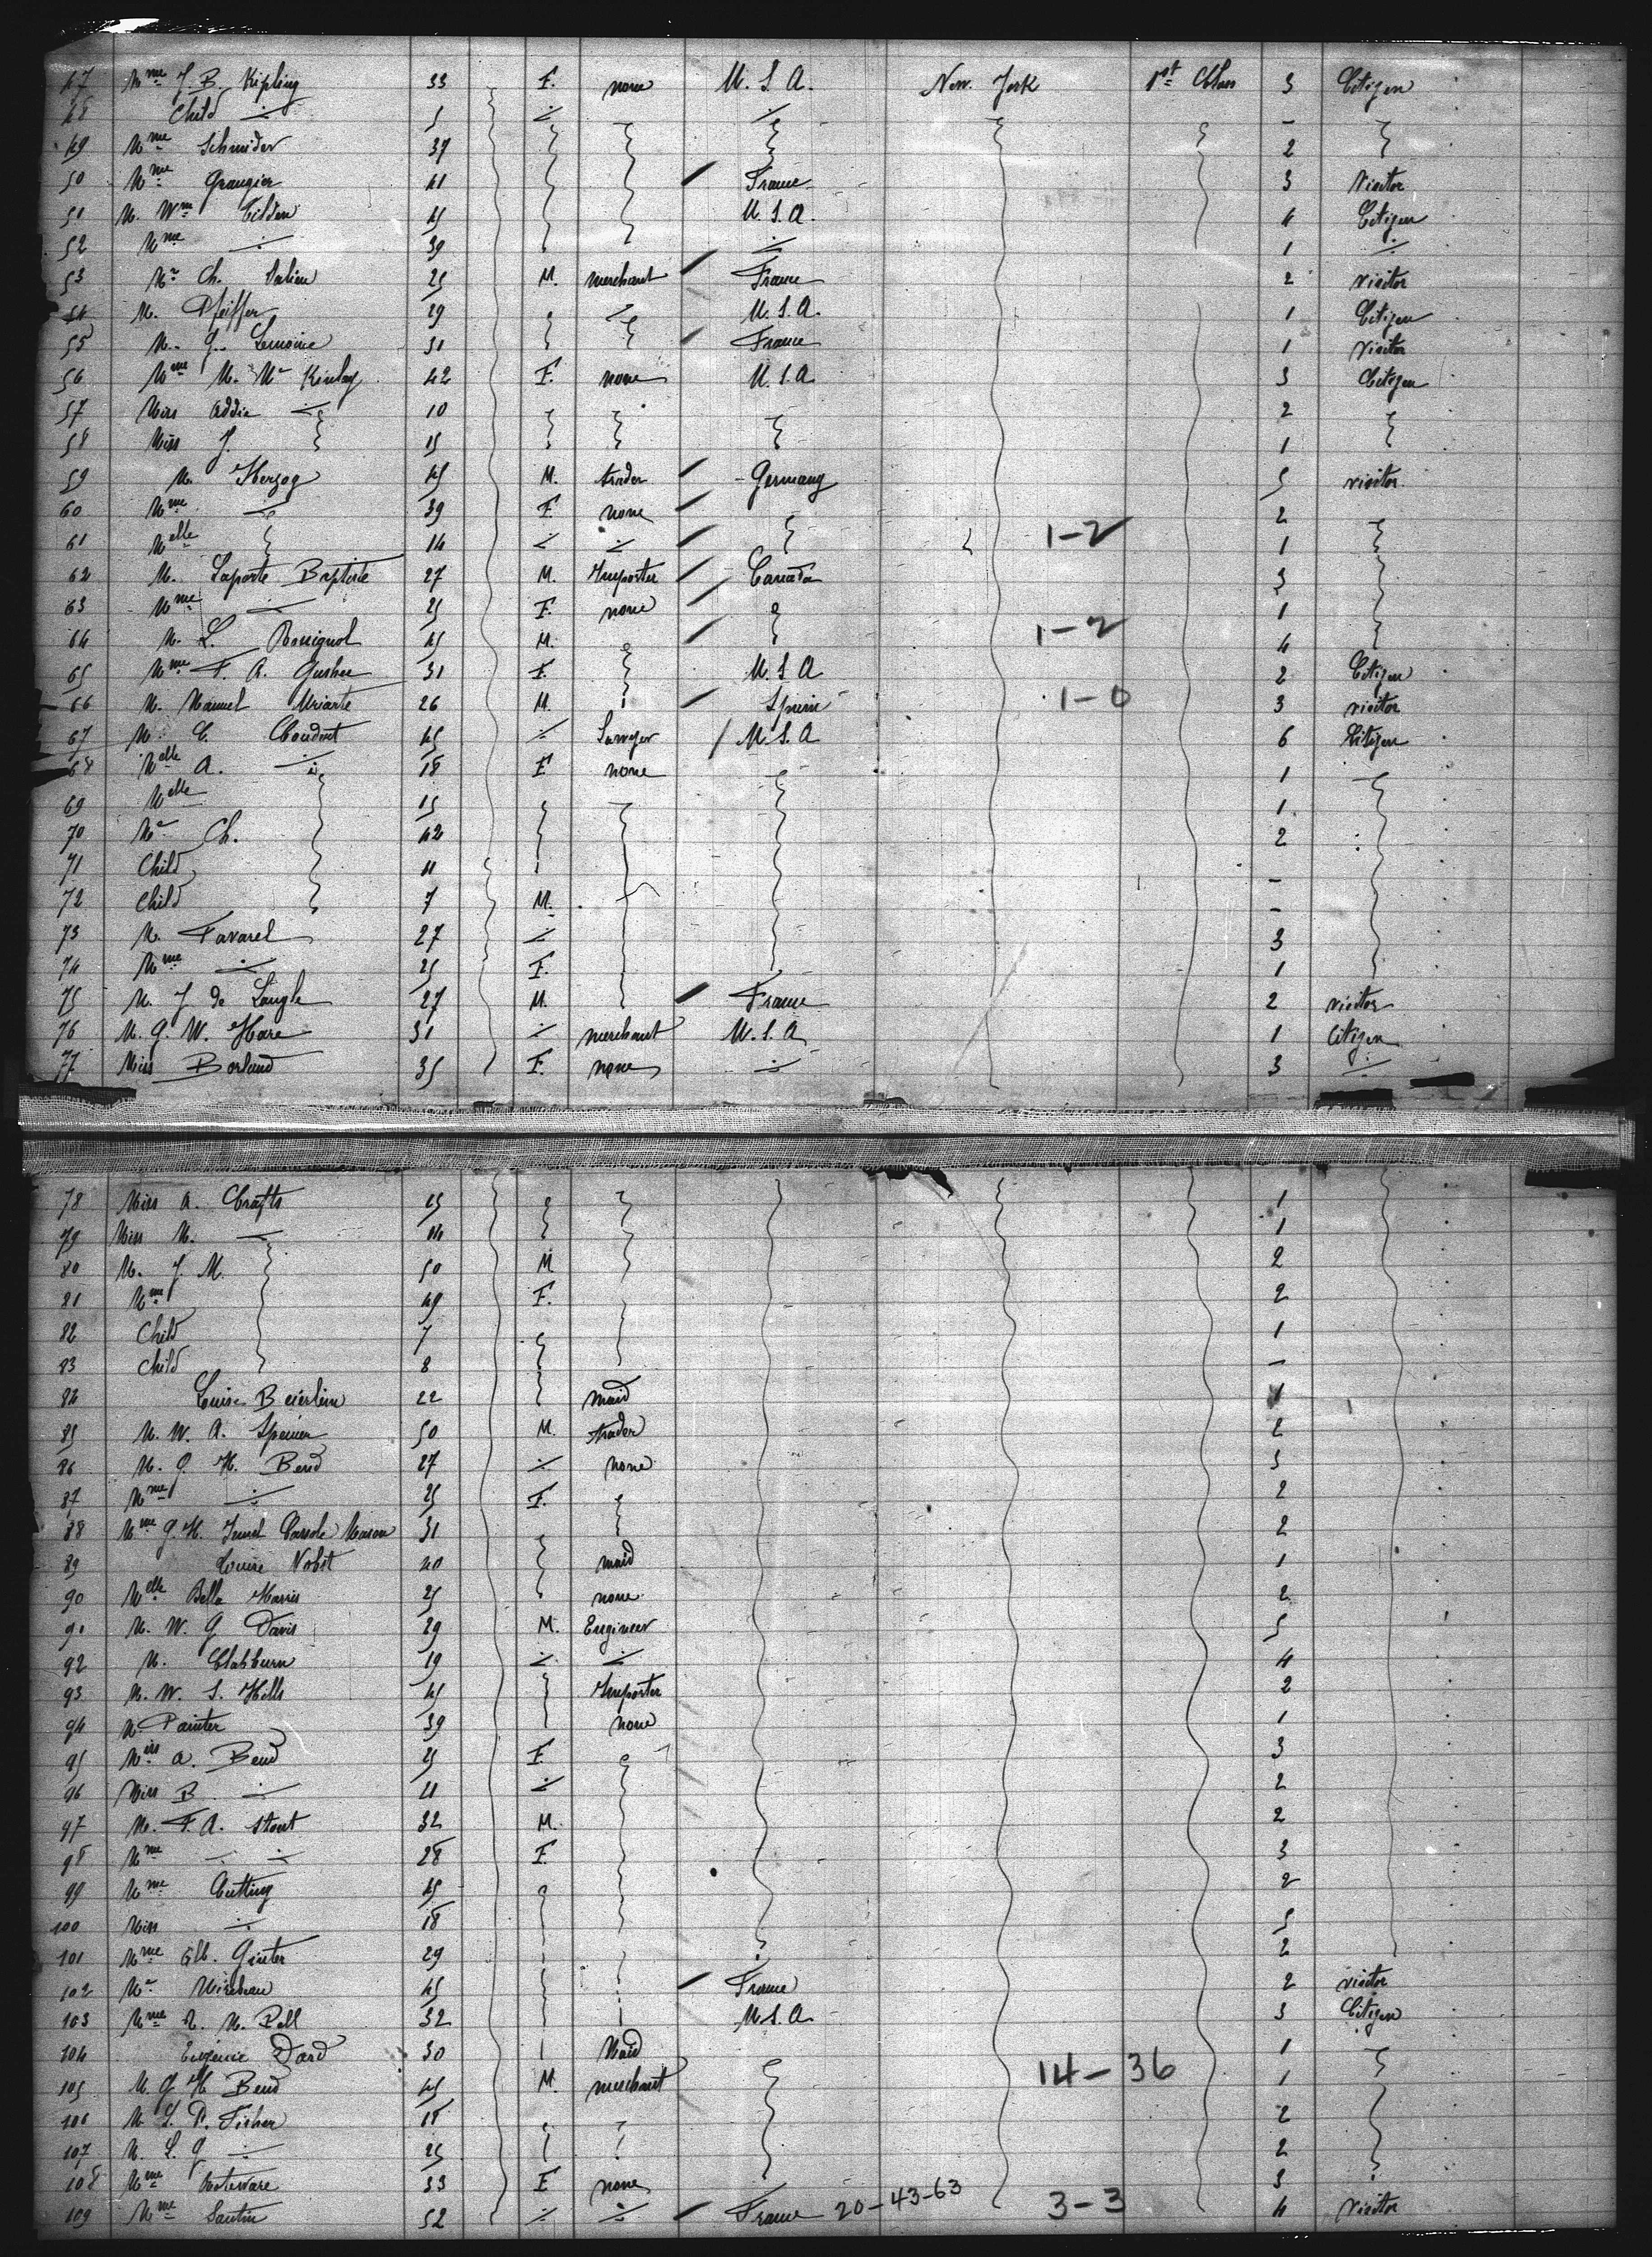 47 Mme J. B. Kipling 33 F. none U. S. A. New York 1st Class 3 Citizen
48 Child 5 -
49 Mme Schnider 37 2
50 Mme Grangier 41 France 3 Visitor
51 M. Wm Tilden 45 U. S. A. 4 Citizen
52 Mme 39 1
53 Mr Ch. 25 M. merchant France 2 visitor
54 M. Pfeiffer 29 U. S. A. 1 Citizen
55 M. G. Lemoine 31 France 1 Visitor
56 Mme M. Mc Kinlay 42 F. none U. S. A 3 Citizen
57 Miss Addie 10 2
58 Miss J. 15 1
59 M. Herzog 45 M. trader Germany 5 visitor
60 Mme 39 F. none 2
61 Melle 14 1-2 1
62 M. Laporte Baptiste 27 M. Importer Canada 3
63 Mme 25 F. none 1
64 M. L. Rossignol 45 M. 1-2 4
65 Mme F. A. 31 F. U. S. A 2 Citizen
66 M. Manuel Uriarte 26 M. 1-0 3 visitor
67 M. C. Coudert 45 Lawyer U. S. A 6 Citizen
68 Melle A. 18 F. none 1
69 Melle 15 1
70 Mr Ch. 42 2
71 Child 11 -
72 Child 7 M. -
73 M. Favarel 27 3
74 Mme 25 F. 1
75 M. J. de Langle 27 M. France 2 visitor
76 M. G. W. Hare 31 merchant U. S. A 1 Citizen
77 Miss Borland 35 F. none 3
78 Miss A. Crafts 15 1
79 Miss M. 14 1
80 M. J. M. 50 M 2
81 Mme 49 F. 2
82 Child 7 1
83 Child 8 -
84 Louise Beierlein 22 maid 1
85 M. W. A. 50 M. trader 2
86 M. G. H. Bend 27 none 3
87 Mme 25 F. 2
88 Mme G. H. 31 2
89 Louise 40 maid 1
90 Melle Bella Harris 25 none 2
91 M. W. G Davis 29 M. Engineer 5
92 M. Clabburn 19 4
93 M. W. S. Hills 45 Importer 2
94 M. Painter 39 none 1
95 Miss A. Bend 25 F. 3
96 Miss B 21 2
97 M. F. A. Stout 32 M. 2
98 Mme 28 F. 3
99 Mme Cutting 45 2
100 Miss 18 5
101 Mme 29 2
102 Mr 45 France 2 visitor
103 Mme M. Pell 32 U. S. A 3 Citizen
104 Eugenie Dard 30 Maid 1
105 M. G H Bend 45 M. merchant 14-36 1
106 M L. P. Fisher 18 2
107 M. L. G 25 2
108 Mme 33 F none 3
109 Mme 52 France 20-43-63 3-3 4 Visitor